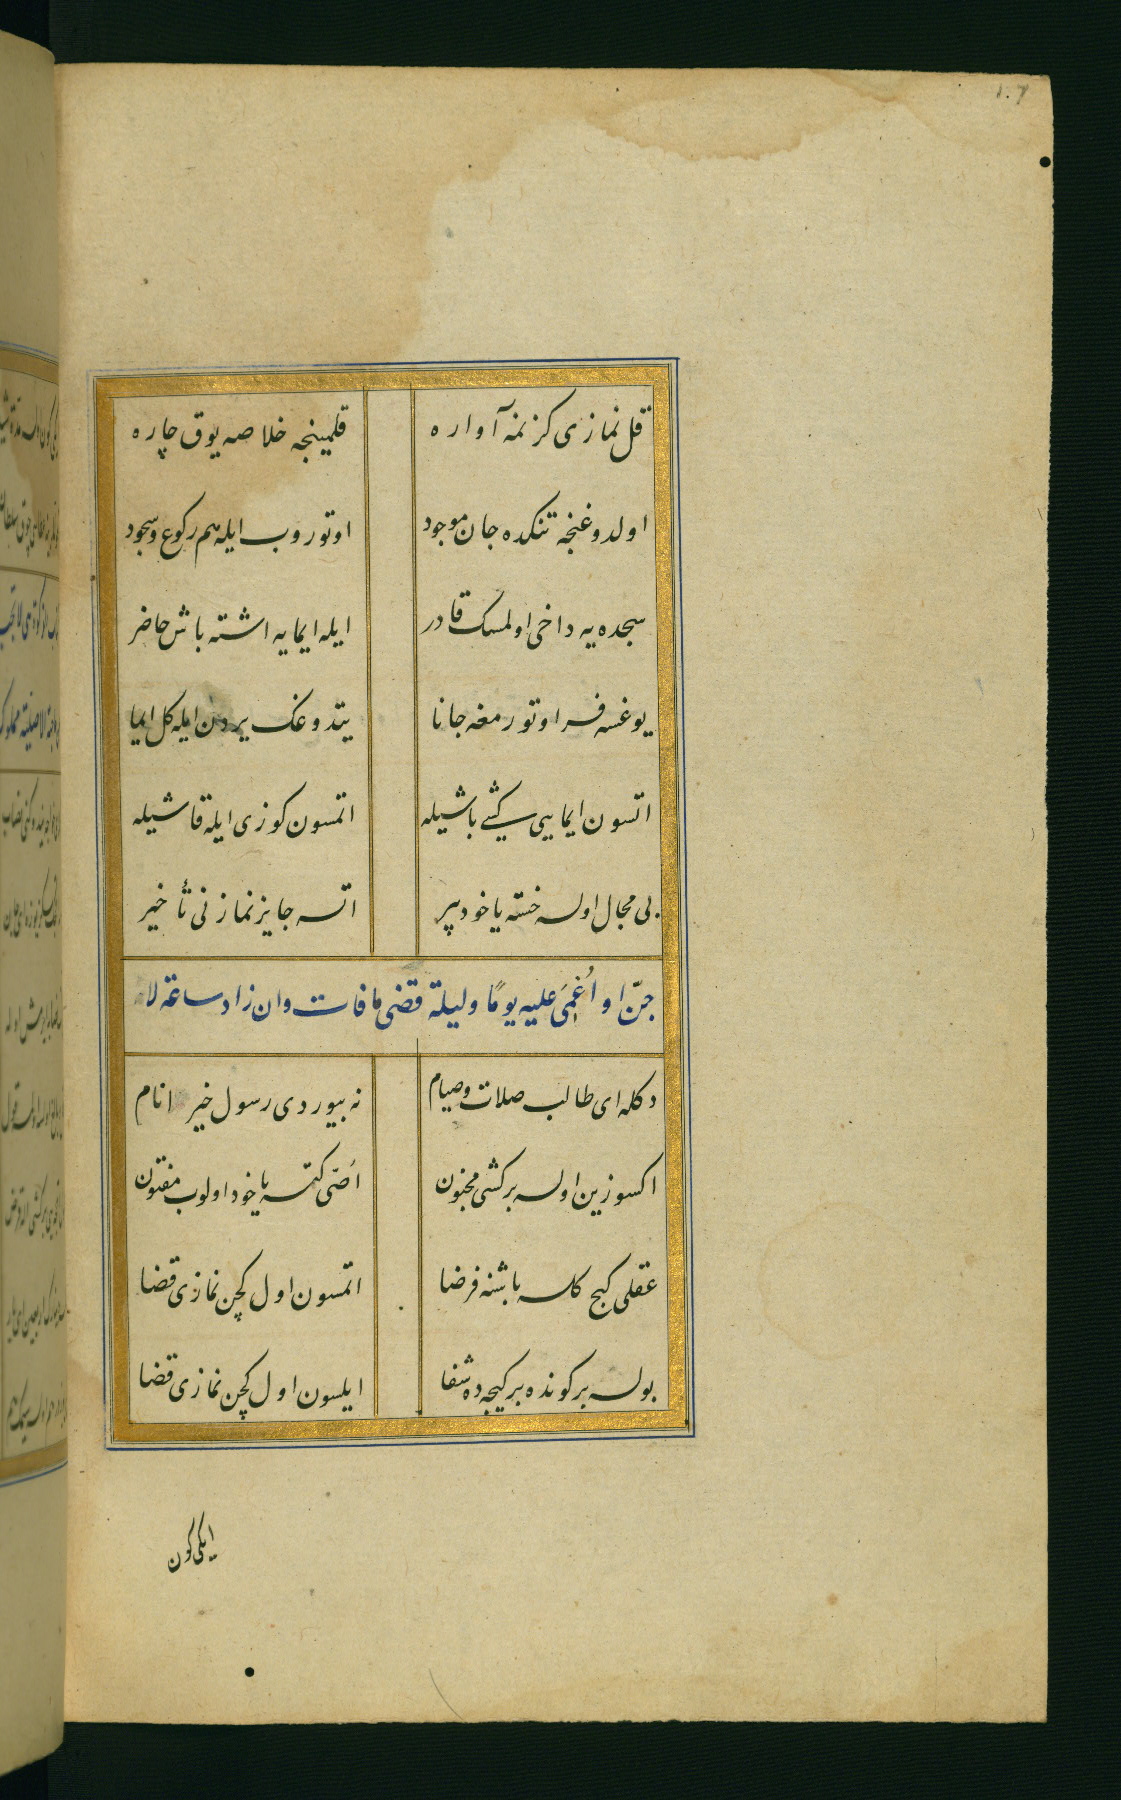 قل نمازی کزنمه آواره قلمینجه خلاصه یوق چاره
اولدوغنجه تنکده جان موجود اوتوروب ایله هم رکوع و سجود
سجده یه داخی اولمسک قادر ایله ایمایه اشته باش حاضر
یوغسه فر اوتورمغه جانا یتدوغک یردن ایله کل ایما
اتسون ایمایی کیشی باشیله اتمسون کوزی ایله قاشیله
بی مجال اولسه خسته یا خود پیر اتسه جایز نمازنی تأخیر
جنّ او اُغْمِیَ علیه یومًا ولیلة قضی مافات وان زاد ساعة لا
دکله ای طالب صلات وصیام نه بیوردی رسول خیر انام
اکسوزین اولسه برکشی مجنون اُصّی کتسه یا خود اولوب مفتون
عقلی کیج کلسه باشنه فرضا اتمسون اول کچن نمازی قضا
بولسه برکونده برکیجه ده شفا ایلسون اول کچن نمازی قضا
ایکی کون